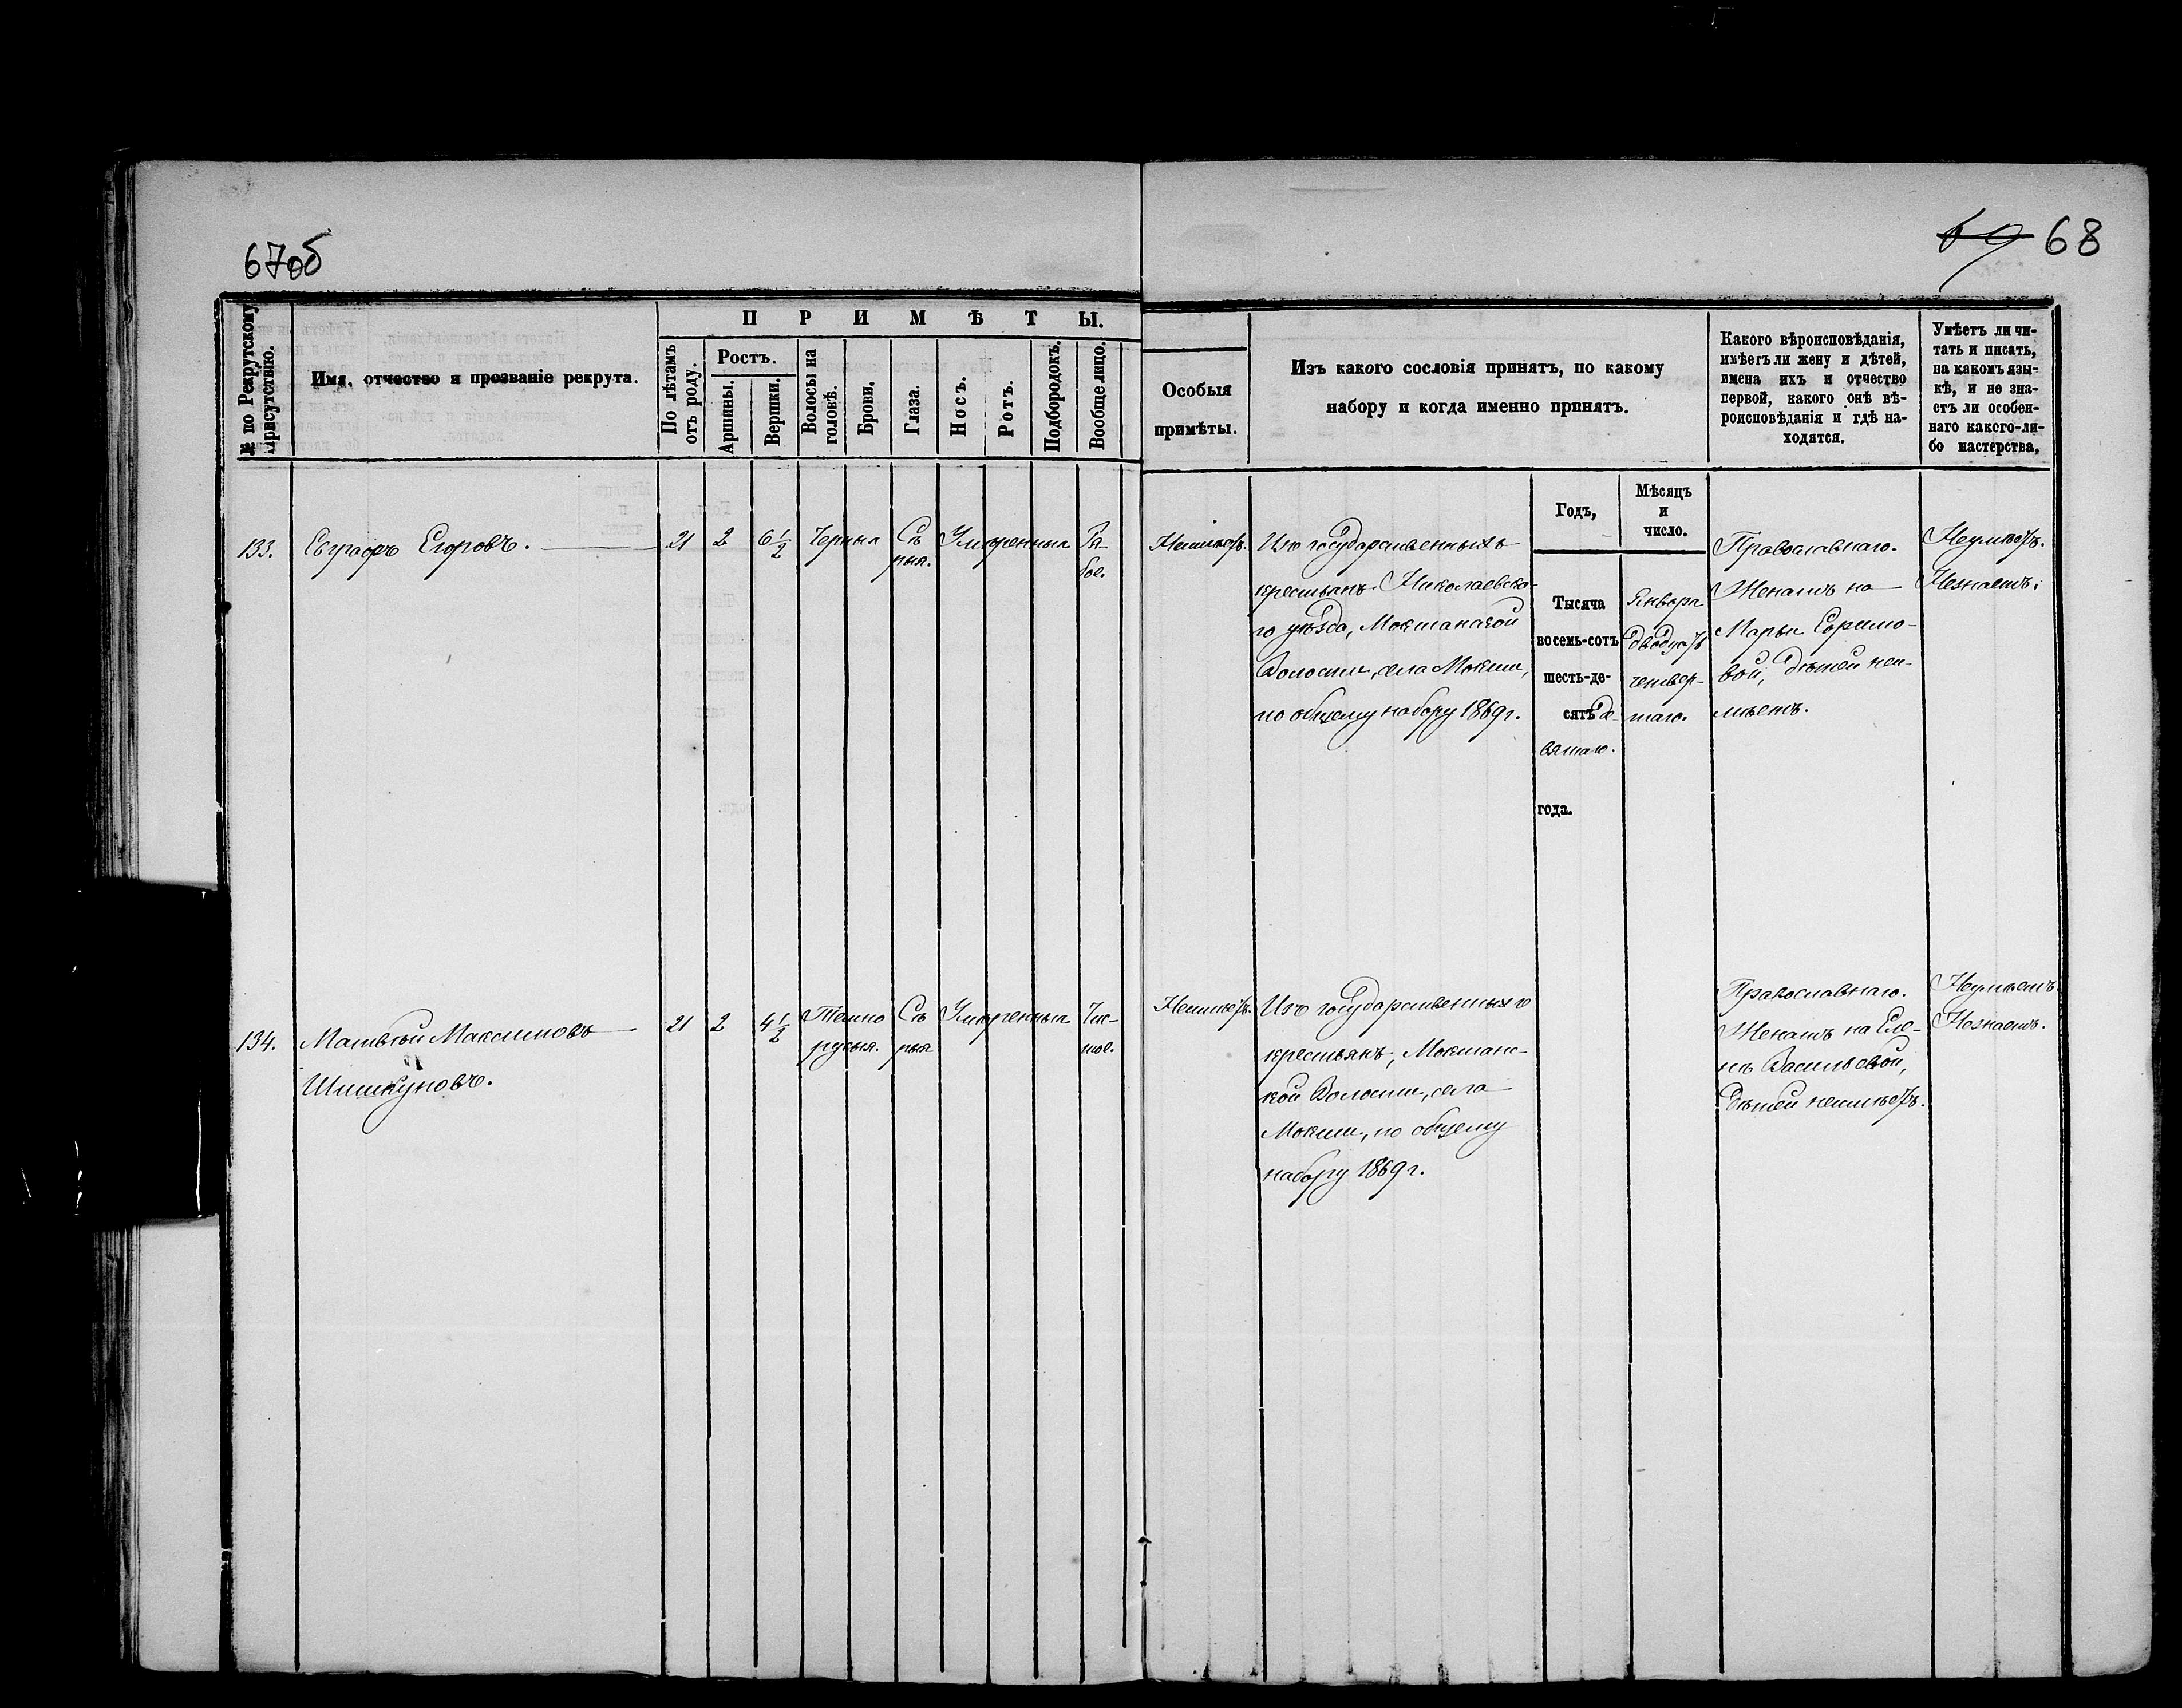 67об
69 68
№ по Рекрутскому
присутствію.
Имя, отчество и прозваніе рекрута.
ПРИМѢТЫ.
По лѣтамъ
отъ роду.
Ростъ.
Аршины.
Вершки.
Волосы на
головѣ.
Брови.
Глаза.
Носъ.
Ротъ.
Подбородокъ.
Вообще лицо.
Особыя
примѣты.
Изъ какого сословія принятъ, по какому
набору и когда именно принятъ.
Какого вѣроисповѣданія,
имѣетъ ли жену и дѣтей,
имена ихъ и отчество
первой, какого онѣ вѣ-
роисповѣданія и гдѣ на-
ходятся.
Умѣетъ ли чи-
тать и писать,
на какомъ язы-
кѣ, и не зна-
етъ ли особен-
наго какого-ли-
бо мастерства.
Годъ,
Мѣсяцъ
и
число.
133.
Евграфъ Егоровъ.
21
2
6 1/2
Черныя
Сѣ
рыя.
Умѣренныя
Ря-
бое.
Неимѣетъ.
Изъ государственныхъ
крестьянъ Николаевска-
го уѣзда, Мокшанской
Волости, села Мокши,
по общему набору 1869 г.
Тысяча
восемь-сотъ
шесть-де-
сятъ де-
вятаго.
года.
Января
двадцать
четвер-
таго.
Православнаго.
Женатъ на
Марьи Ефимо-
вой, дѣтей неи-
мѣетъ.
Неумѣетъ.
Незнаетъ.
134.
Матвѣй Максимовъ
Шишкуновъ.
21
2
4 1/2
Темно
русыя.
Сѣ
рыя
Умѣренныя
Чис-
тое.
Неимѣетъ.
Изъ государственныхъ
крестьянъ, Мокшанс-
кой Волости, села
Мокши, по общему
набору 1869 г.
Православнаго.
Женатъ на Еле-
нѣ Васильевой,
дѣтей неимѣетъ.
Неумѣетъ.
Незнаетъ.